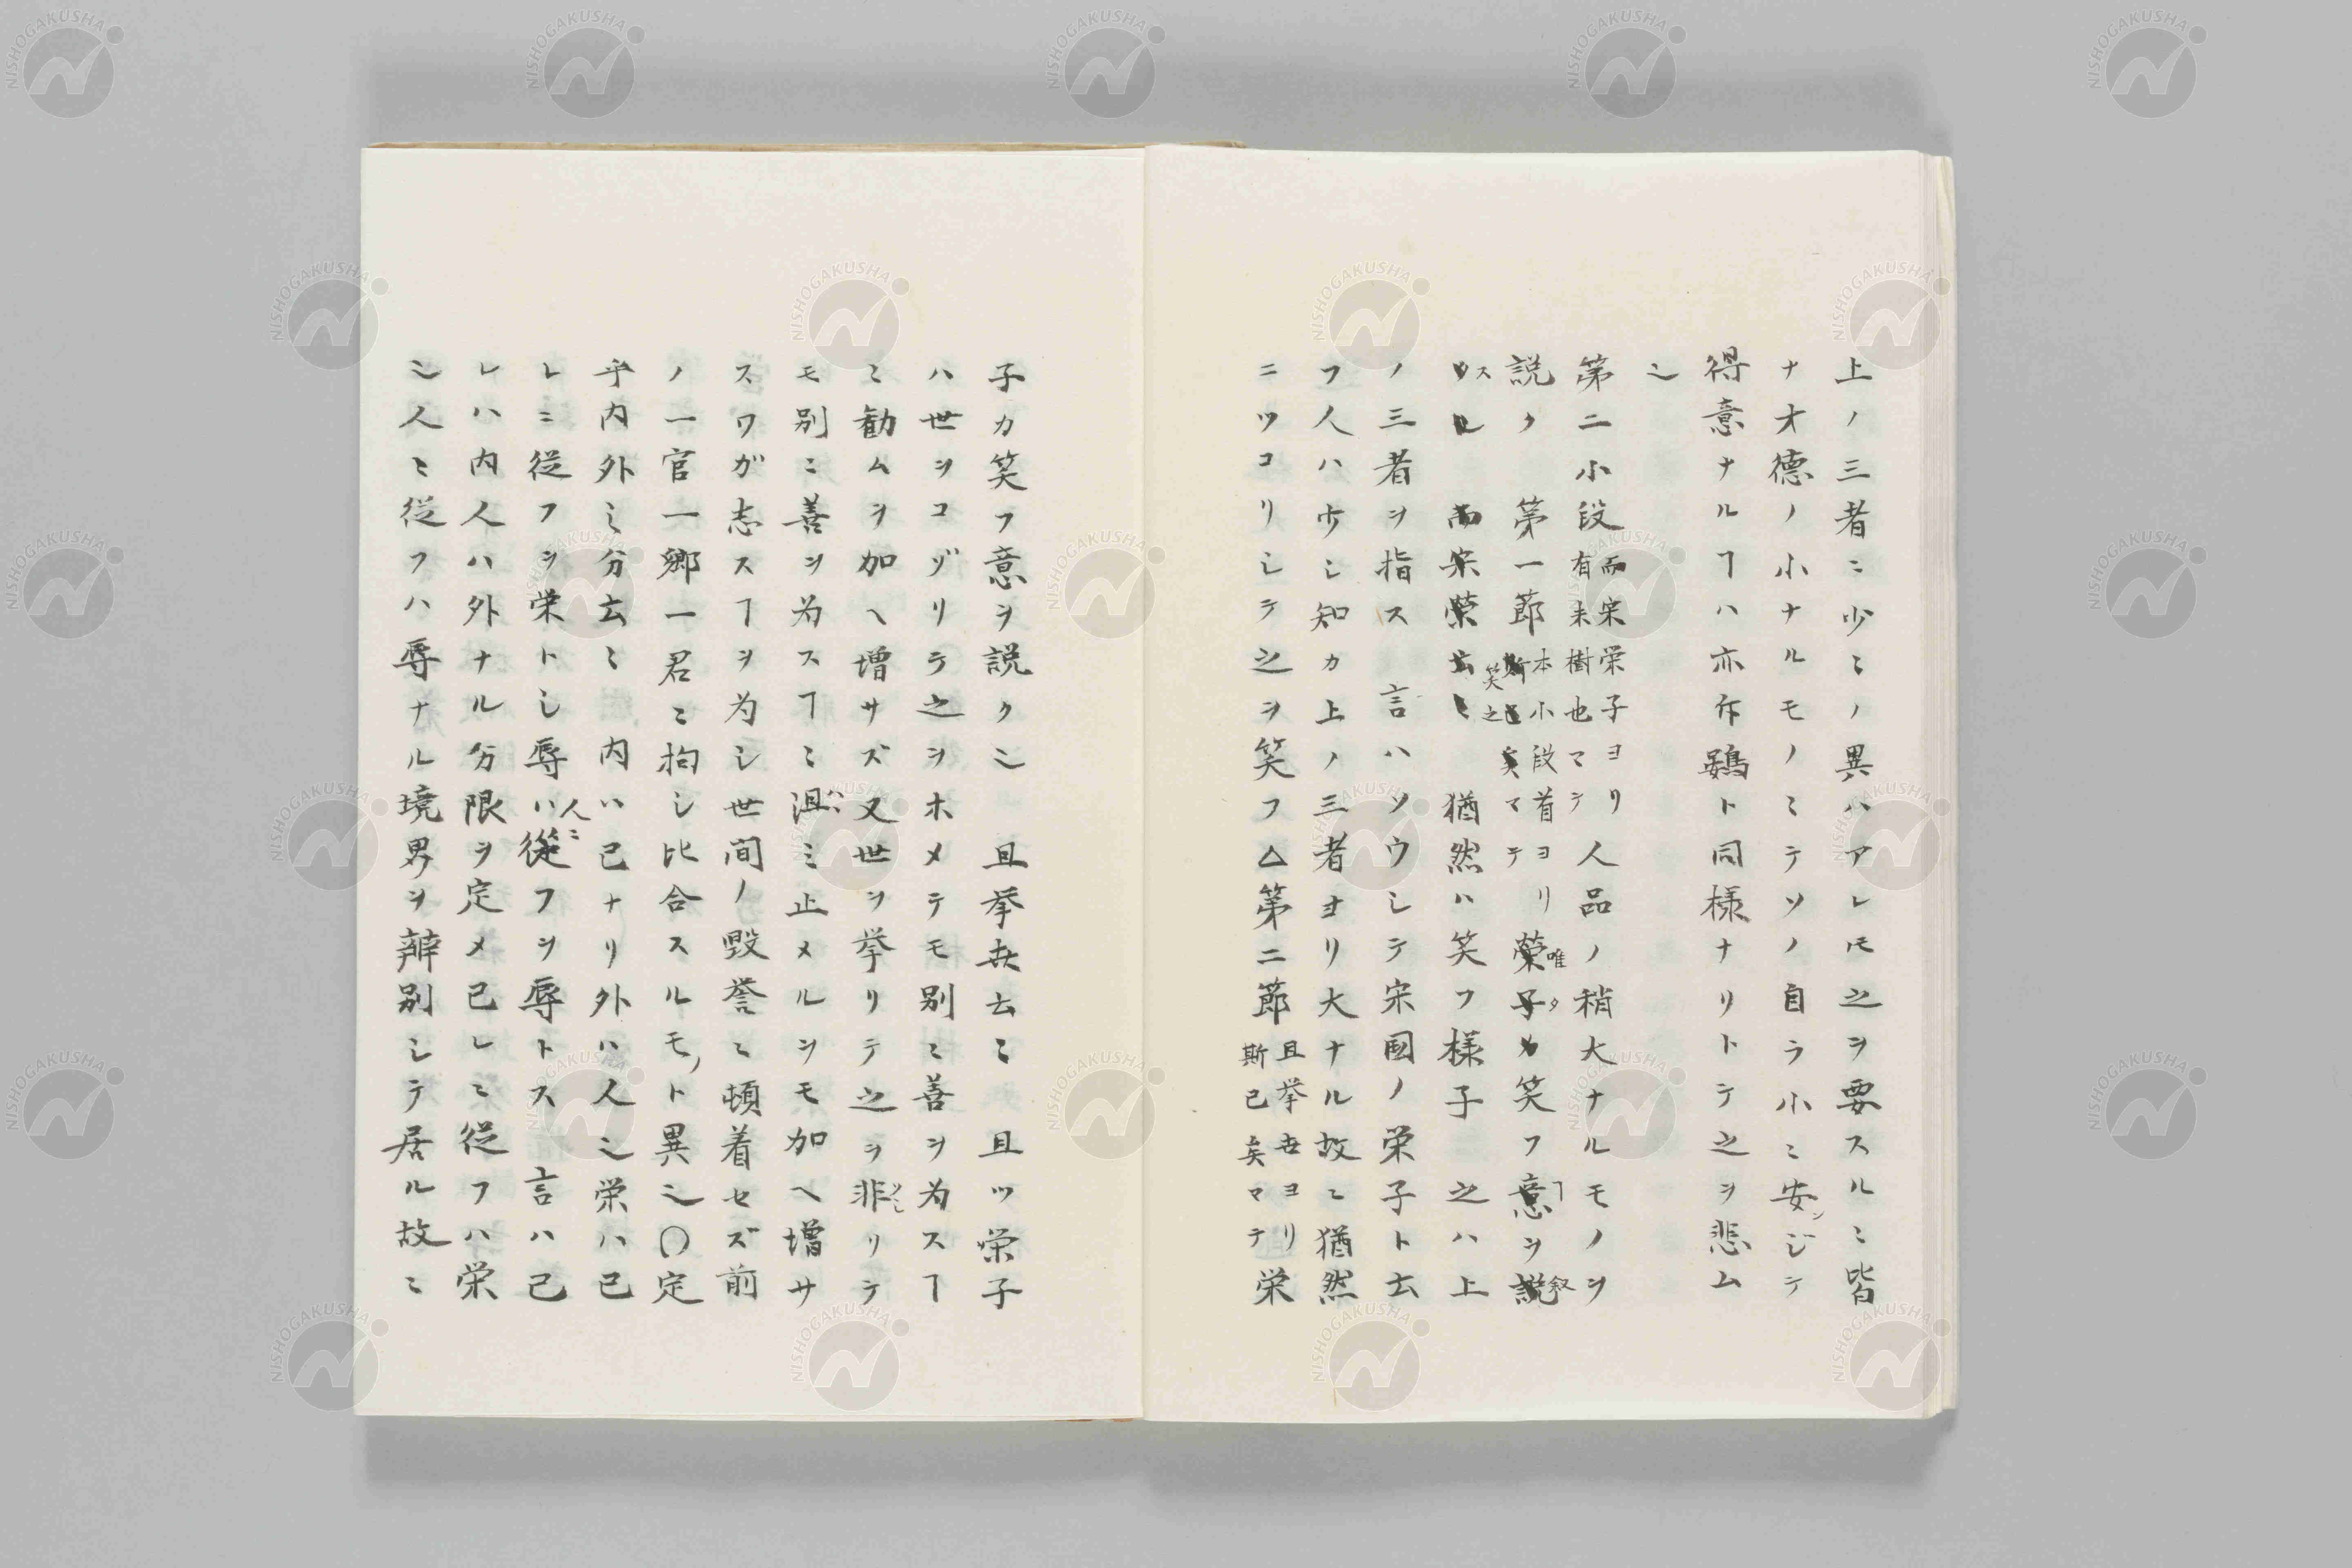 上ノ三者ニ少〻ノ異ハアレ𪜈之ヲ要スルニ皆
ナ才德ノ小ナルモノニテソノ自ラ小ニ安ンジテ
得意ナルヿハ亦斥鷃ト同様ナリトテ之ヲ悲ム
也
第二小段 而宋栄子ヨリ有未樹也マテ 人品ノ稍大ナルモノヲ
説ク 第一節 本小段首ヨリ笑之マテ 唯タ笑フヿヲ叙
ス 猶然ハ笑フ様子 之ハ上
ノ三者ヲ指ス 言ハソウシテ宋國ノ栄子ト云
フ人ハ少シ知カ上ノ三者ヨリ大ナル故ニ猶然
ニツコリシテ之ヲ笑フ△第二節 且挙世ヨリ斯已矣マテ 栄
子カ笑フ意ヲ説ク也 且挙世云〻 且ツ栄子
ハ世ヲコゾリテ之ヲホメテモ別ニ善ヲ為スヿ
ニ勧ムヲ加ヘ増サズ又世ヲ挙リテ之ヲ非リテ
モ別ニ善ヲ為スヿニ沮ミ止メルヲモ加ヘ増サ
スワガ志スヿヲ為シ世間ノ毀誉ニ頓着セズ前
ノ一官一郷一君ニ拘シ比合スルモノト異也〇定
乎内外之分云〻 内ハ己ナリ外ハ人也栄ハ己
レニ従フヲ栄トシ辱ハ人ニ従フヲ辱トス 言ハ己
レハ内人ハ外ナル分限ヲ定メ己レニ従フハ栄
也人ニ従フハ辱ナル境界ヲ辨別シテ居ル故ニ
NISHOGAKUSHA